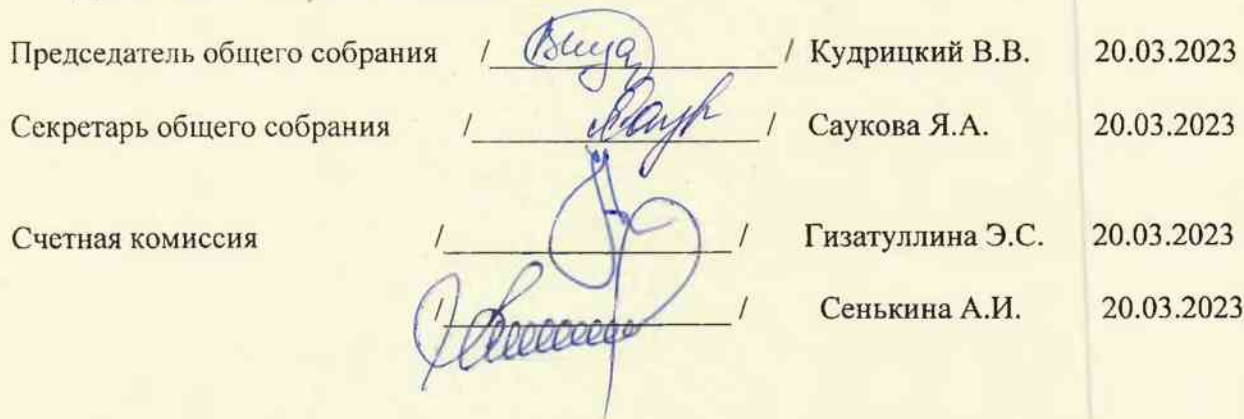 Председатель общего собрания / / Кудрицкий В.В. 20.03.2023
Секретарь общего собрания / / Саукова Я.А. 20.03.2023
Счетная комиссия / / Гизатуллина Э.С. 20.03.2023
/ / Сенькина А.И. 20.03.2023